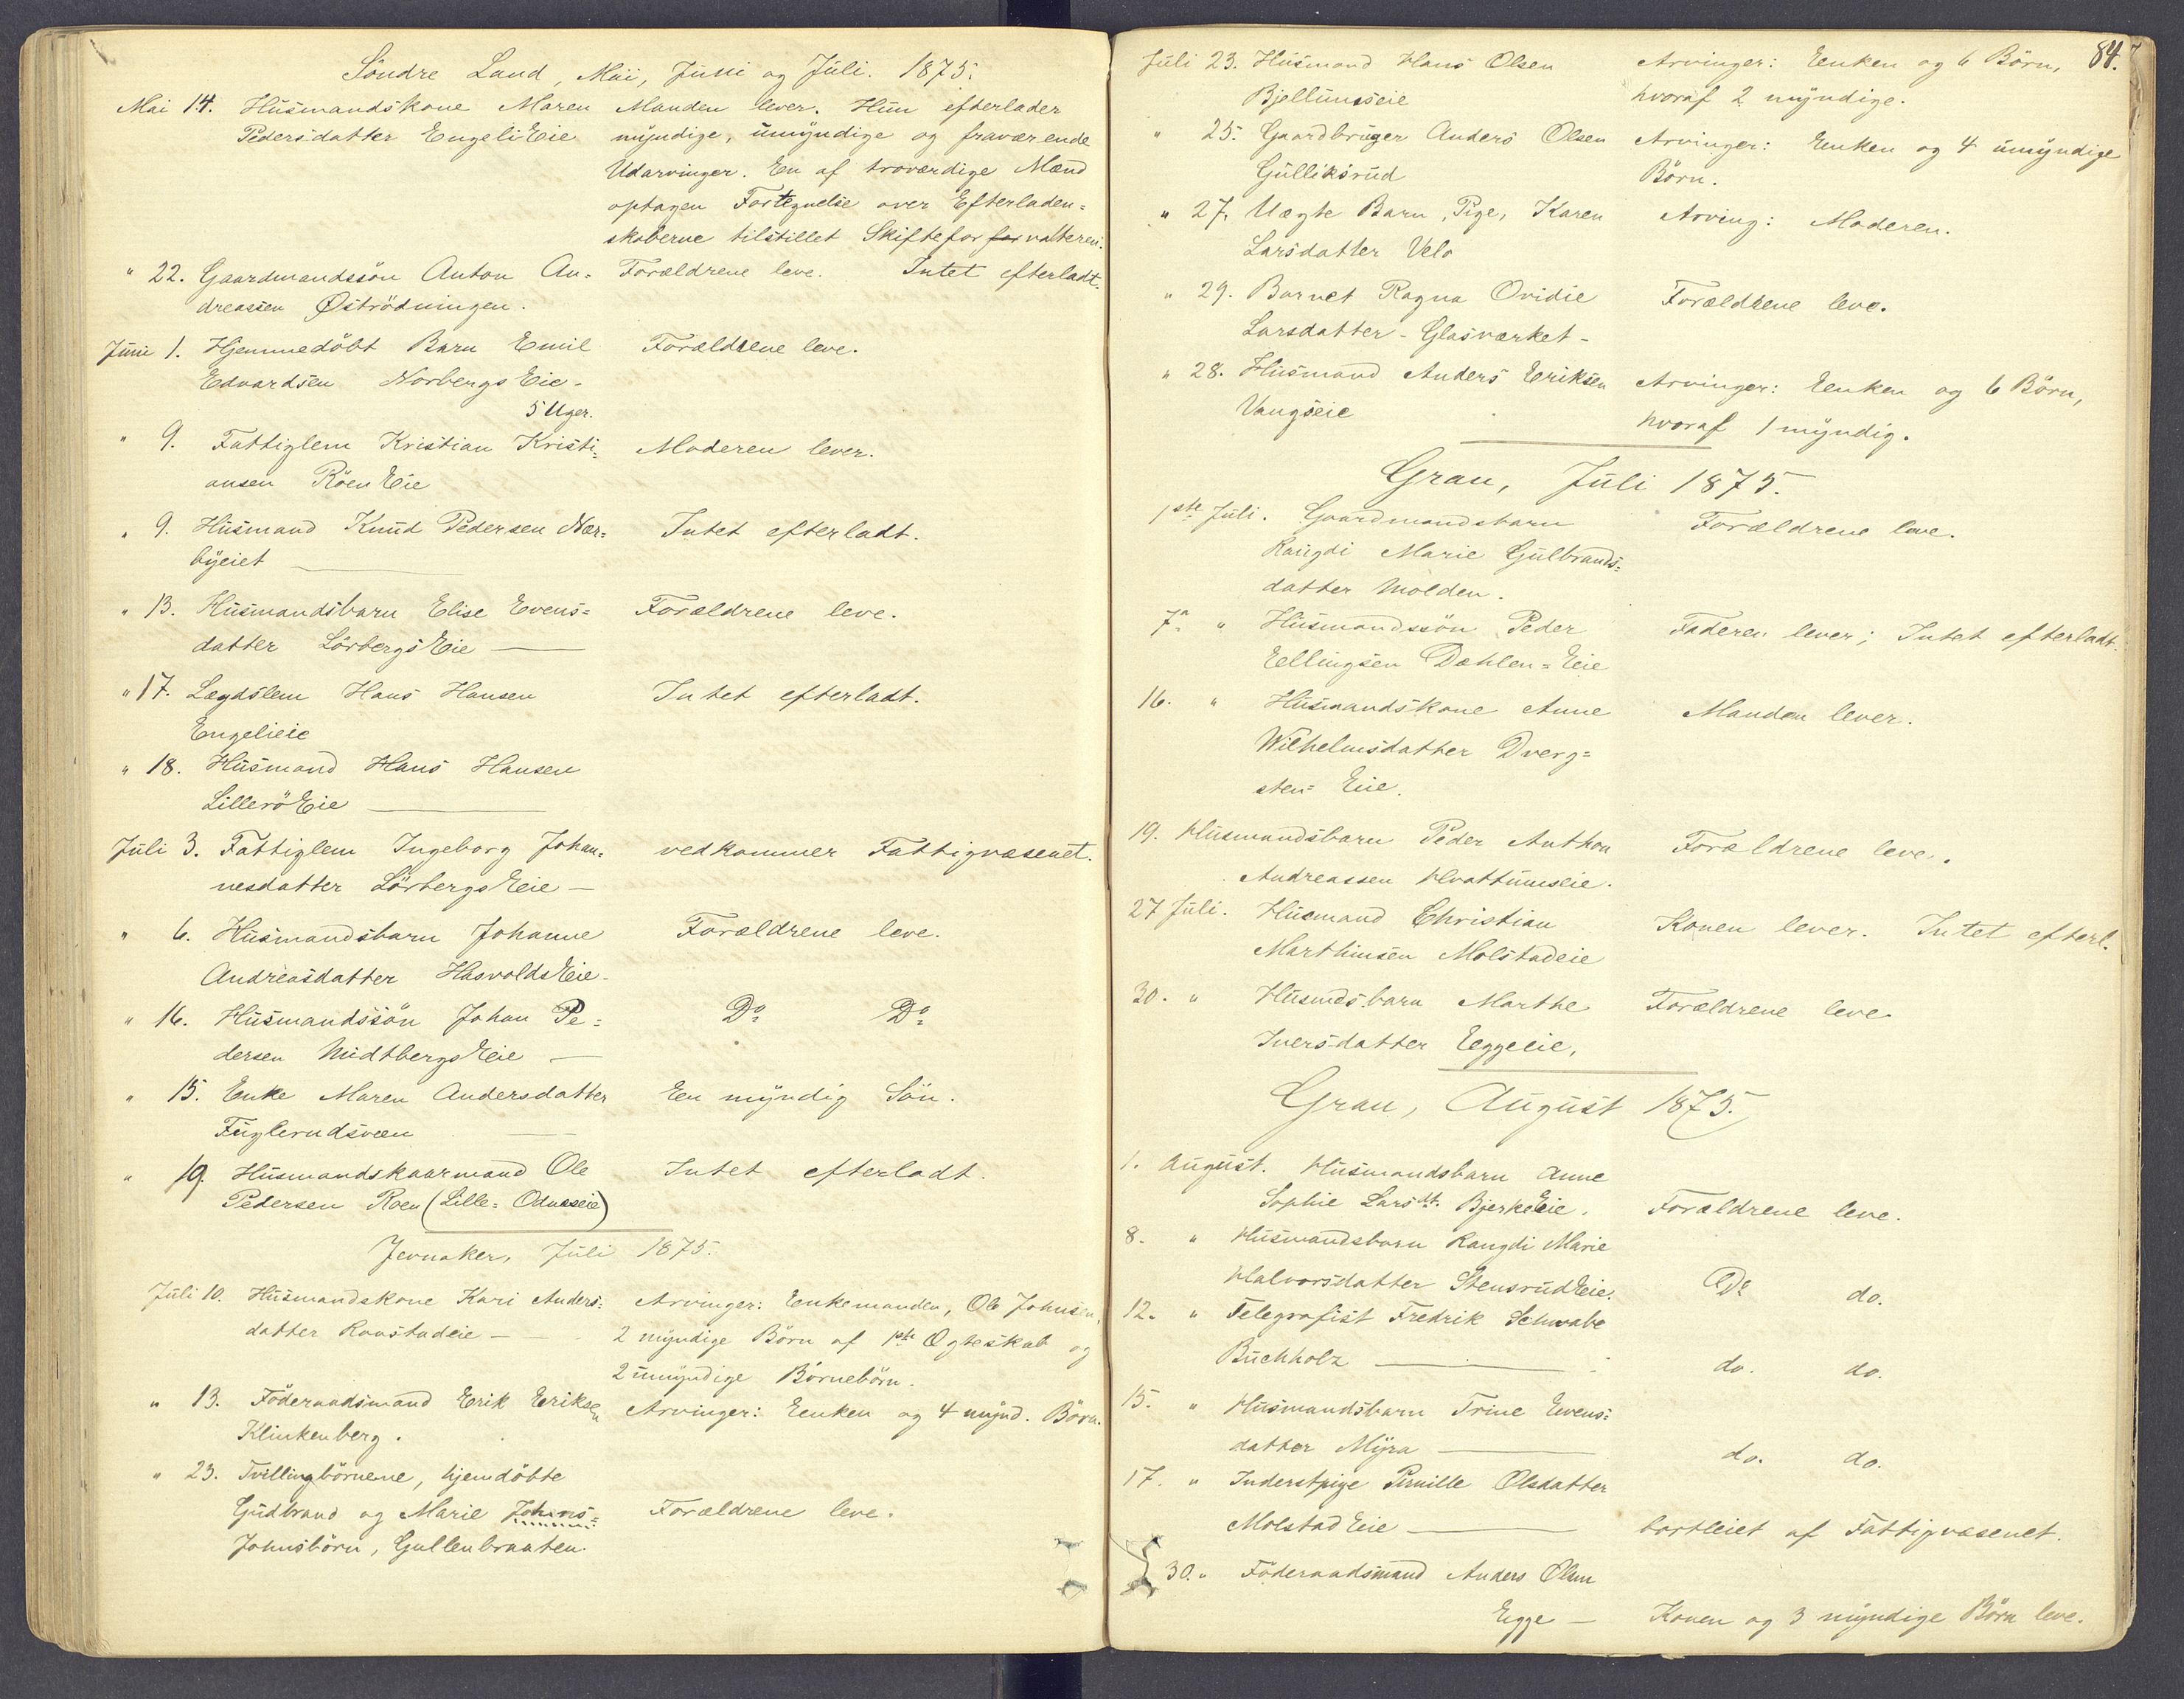 Söndre Land, Mai, Juni og Juli. 1875.
Mai 14. Husmandskone Maren Manden lever. Hun efterlader
Pedersdatter EngeliEie myndige, umyndige og fraværende
Udarvinger. En af troværdige Mænd
optagen Fortegnelse over Efterladen=
skaberne tilstillet Skiftefor for valteren.
" 22. Gaardmandssön Anton An= Forældrene leve. Intet efterladt.
dreassen Øströdningen.
Juni 1. Hjemmedöbt Barn Emil Forældrene leve.
Edvardsen NorbergsEie-
5 Uger.
" 9. Fattiglem Kristian Kristi= Moderen lever.
ansen RöenEie
" 9. Husmand Knud Pedersen Nær= Intet efterladt.
byeiet
" 13. Husmandsbarn Elise Evens= Forældrene leve.
datter LörbergsEie
" 17. Lægdslem Hans Hansen Intet efterladt.
Engelieie
" 18. Husmand Hans Hansen
LilleröEie
Juli 3. Fattiglem Ingeborg Johan= vedkommer Fattigvæsenet.
nesdatter LörbergsEie -
" 6. Husmandsbarn Johanne Forældrene leve.
Andreasdatter HasvoldsEie-
" 16. Husmandssön Johan Pe= Do Do
dersen MidtbergsEie -
" 15. Enke Maren Andersdatter En myndig Sön.
Fuglerudsveen
" 19. Husmandskaarmand Ole Intet efterladt.
Pedersen Roen (Lille= Odnæseie)
Jevnaker, Juli 1875.
Juli 10. Husmandskone Kari Anders= Arvinger: Enkemanden, Ole Johnsen,
datter Raastadeie - 2 myndige Börn af 1ste Ægteskab og
2 umyndige Börnebörn.
" 13. Föderaadsmand Erik Eriksen Arvinger: Enken og 4 mynd. Börn.
Klinkenberg.
" 23. Tvillingbörnene, hjemdöbte
Gudbrand og Marie Johns= Forældrene leve.
Johnsbörn, Gullenbraaten.
84.
Juli 23. Husmand Hans Olsen Arvinger: Enken og 6 Börn,
Bjellumseie hvoraf 2 myndige.
" 25. Gaardbruger Anders Olsen Arvinger: Enken og 4 umyndige
Gulliksrud Börn.
" 27. Uægte Barn, Pige, Karen Arving: Moderen.
Larsdatter Velo
" 29. Barnet Ragna Ovidie Forældrene leve.
Larsdatter - Glasværket -
" 28. Husmand Anders Eriksen Arvinger: Enken og 6 Börn,
Vangseie hvoraf 1 myndig.
Gran, Juli 1875.
1ste Juli. Gaardmandsbarn Forældrene leve.
Raugdi Marie Gulbrands=
datter Molden.
7de " Husmandssön Peder Faderen lever; Intet efterladt.
Ellingsen Dæhlen=Eie
16. " Husmandskone Anne Manden lever.
Wilhelmsdatter Dverg=
sten= Eie.
19. Husmandsbarn Peder Anthon Forældrene leve.
Andreassen Hvattumseie.
27 Juli. Husmand Christian Konen lever. Intet efterl.
Marthinsen Molstadeie
30. " Husmdsbarn Marthe Forældrene leve.
Iversdatter Eggeeie.
Gran, August 1875.
1. August. Husmandsbarn Anne
Sophie Larsdt. BjerkeEie. Forældrene leve.
8. " Husmandsbarn Rangdi Marie
Halvorsdatter StensrudEie. Do do.
12. " Telegrafist Fredrik Schwabe
Buchholz do. do.
15. " Husmandsbarn Trine Evens=
datter Myra do. do.
17. " Inderstpige Pernille Olsdatter
Molstad Eie bortleiet af Fattigvæsenet.
30. " Föderaadsmand Anders Olsen
Egge - Konen og 3 myndige Börn leve.